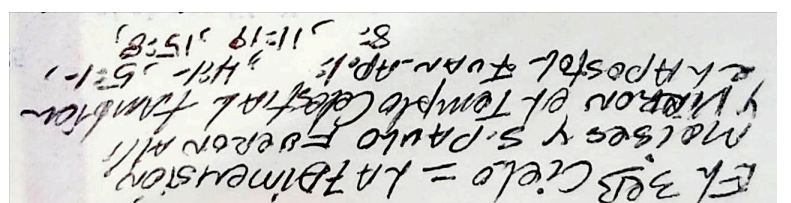 EL 3eR Cielo = LA 7 Dimensión
Moises y S. PAULO FUERON Alli
y VIERON EL Templo CelestiAL tAmbien
EL APostoL JUAN. Ap. 1: ; 4:1-, 5:1-,
8: , 11:19, 15:8,